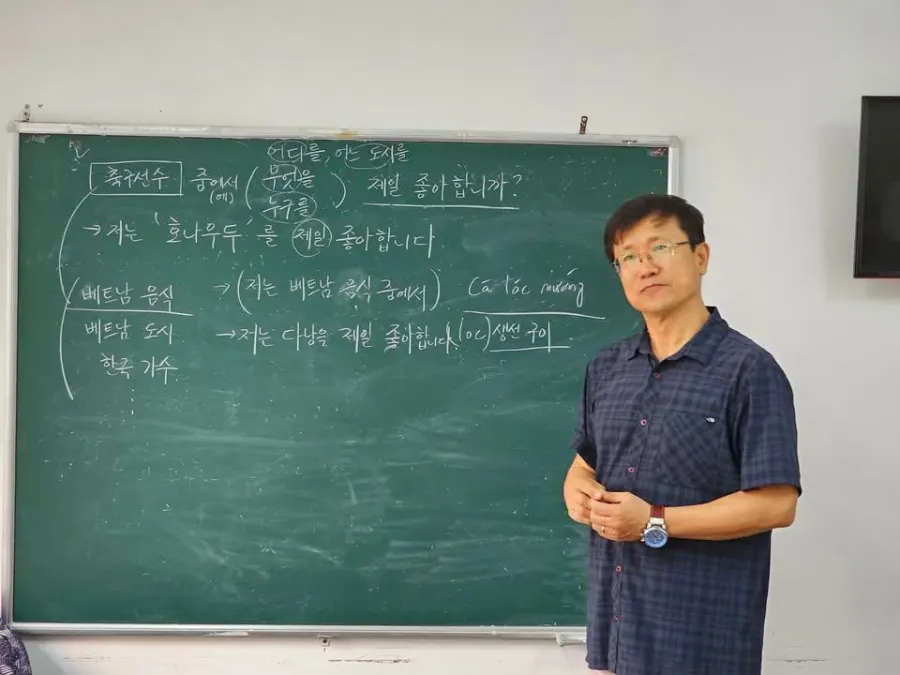 어디를, 어느 도시를
축구선수 중에서 ( 무엇을 ) 제일 좋아합니까?
(에)
누구를
→ 저는 '호나우두'를 제일 좋아합니다.
베트남 음식 → (저는 베트남 음식 중에서) Cá lóc nướng
베트남 도시 → 저는 다낭을 제일 좋아합니다. 생선 구이
한국 가수
⋮